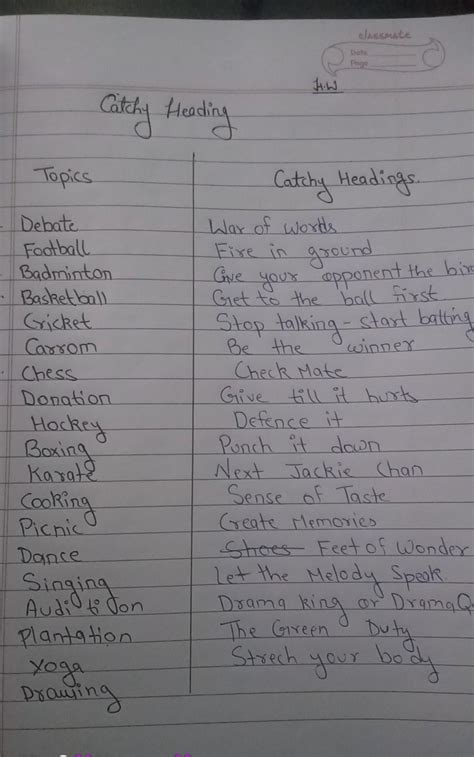 classmate
Date
Page
H.W
Catchy Heading
Topics Catchy Headings.
Debate War of words
Football Fire in ground
Badminton Give your opponent the bir
Basketball Get to the ball first
Cricket Stop talking - start batting
Carrom Be the winner
Chess Check Mate
Donation Give till it hurts
Hockey Defence it
Boxing Punch it down
Karate Next Jackie Chan
Cooking Sense of Taste
Picnic Create Memories
Dance Shoes Feet of Wonder
Singing Let the Melody Speak
Audition Drama king or Drama Q
Plantation The Green Duty
Yoga Strech your body
Drawing